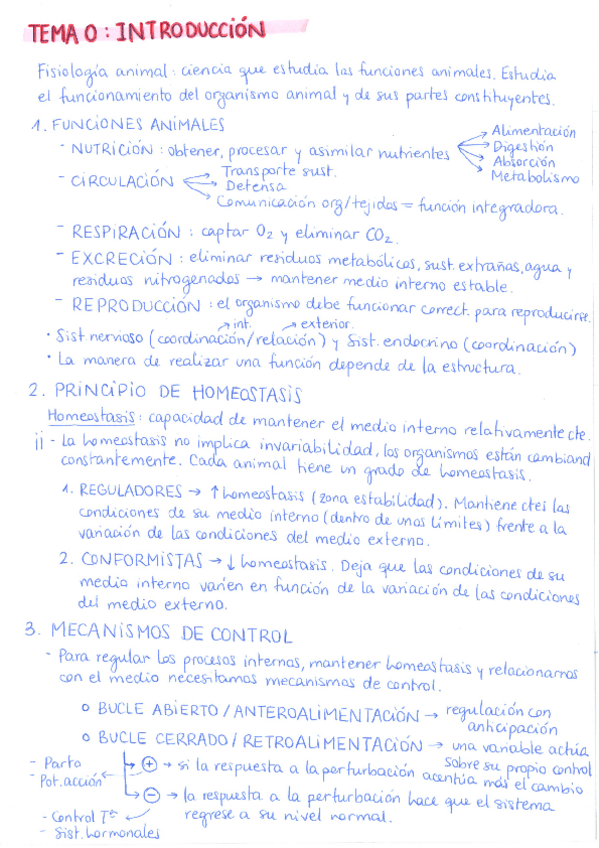 TEMA 0: INTRODUCCIÓN
Fisiología animal: ciencia que estudia las funciones animales. Estudia
el funcionamiento del organismo animal y de sus partes constituyentes.
1. FUNCIONES ANIMALES
- NUTRICIÓN: obtener, procesar y asimilar nutrientes
→ Alimentación
→ Digestión
→ Absorción
→ Metabolismo
- CIRCULACIÓN
→ Transporte sust.
→ Defensa
→ Comunicación org/tejidos = función integradora.
- RESPIRACIÓN: captar O2 y eliminar CO2.
- EXCRECIÓN: eliminar residuos metabólicos, sust. extrañas, agua y
residuos nitrogenados → mantener medio interno estable.
- REPRODUCCIÓN: el organismo debe funcionar correct. para reproducirse.
→ int. → exterior.
· Sist nervioso (coordinación/relación) y Sist. endocrino (coordinación)
· La manera de realizar una función depende de la estructura.
2. PRINCIPIO DE HOMEOSTASIS
Homeostasis: capacidad de mantener el medio interno relativamente cte.
¡¡ - La homeostasis no implica invariabilidad, los organismos están cambiand
constantemente. Cada animal tiene un grado de homeostasis.
1. REGULADORES → ↑ homeostasis (zona estabilidad). Mantiene ctes las
condiciones de su medio interno (dentro de unos límites) frente a la
variación de las condiciones del medio externo.
2. CONFORMISTAS → ↓ homeostasis. Deja que las condiciones de su
medio interno varíen en función de la variación de las condiciones
del medio externo.
3. MECANISMOS DE CONTROL
- Para regular los procesos internos, mantener homeostasis y relacionarnos
con el medio necesitamos mecanismos de control.
o BUCLE ABIERTO / ANTEROALIMENTACIÓN → regulación con
anticipación
o BUCLE CERRADO / RETROALIMENTACIÓN → una variable actúa
sobre su propio control
- Parto
- Pot. acción
→ ⊕ → si la respuesta a la perturbación acentúa más el cambio
→ ⊖ → la respuesta a la perturbación hace que el sistema
regrese a su nivel normal.
- Control Tª
- Sist. hormonales